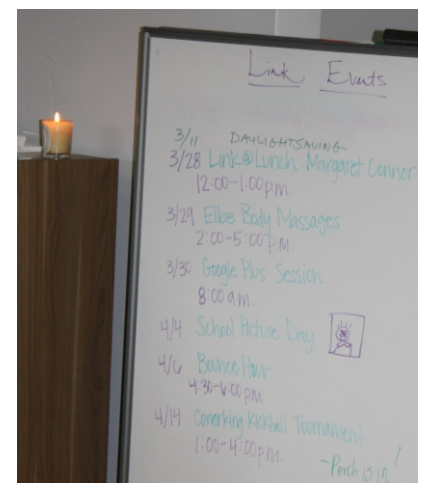 Link Events
3/11 DAYLIGHTSAVING
3/28 Link@Lunch: Margaret Connor
12:00-1:00p.m.
3/29 Elloe Body Massages
2:00-5:00 P.M.
3/30 Google Plus Session
8:00 a.m.
4/4 School Picture Day
4/6 Bounce Hour
4:30-6:00 pm
4/14 Coworking Kickball Tournament
1:00-4:00pm.
- Perch is in!